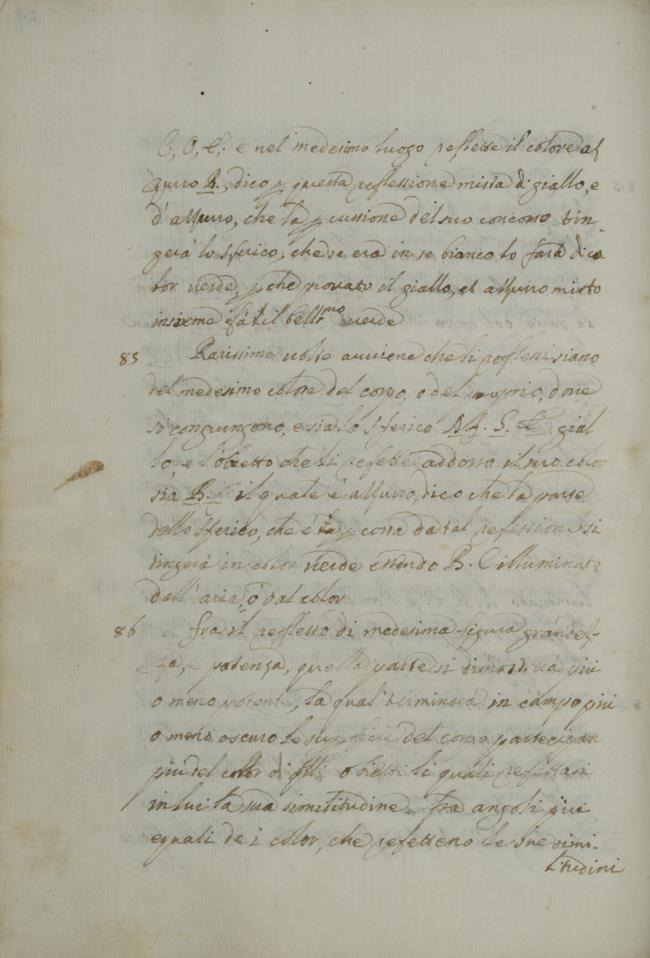 C, O, E; e nel medesimo luogo reflette il colore az
zurro B., dico p questa reflessione mista di giallo, e
d'azzurro, che la pcussione del suo concorso tin-
gera' lo sferico, che se era in se bianco lo farà di co
lor verde, pche provato il giallo, et azzurro misto
insieme fà il bell.mo verde
85 Rarissime volte avviene che li reflessi siano
nel medesimo colore del corpo, o del proprio, dove
si congiungono, e sia lo sferico gial
lo, e l'obietto che li reflette addosso il suo color
sia B. il quale è azzurro, dico che la parte
dello sferico, che è pcossa da tal reflessione si
tingerà in color verde essendo B. C illuminato
dall'aria, ò dal color
86 frà il reflesso di medesima figura, grandez-
za, e potenza, quella parte si dimostrerà più
o meno potente, la qual terminerà in campo più
o meno oscuro le supficie del corpo partecipan
più del color di qlli obietti li quali reflettan
in lui la sua similitudine tra angoli più
equali de i color, che refletteno le sue simi-
litudini